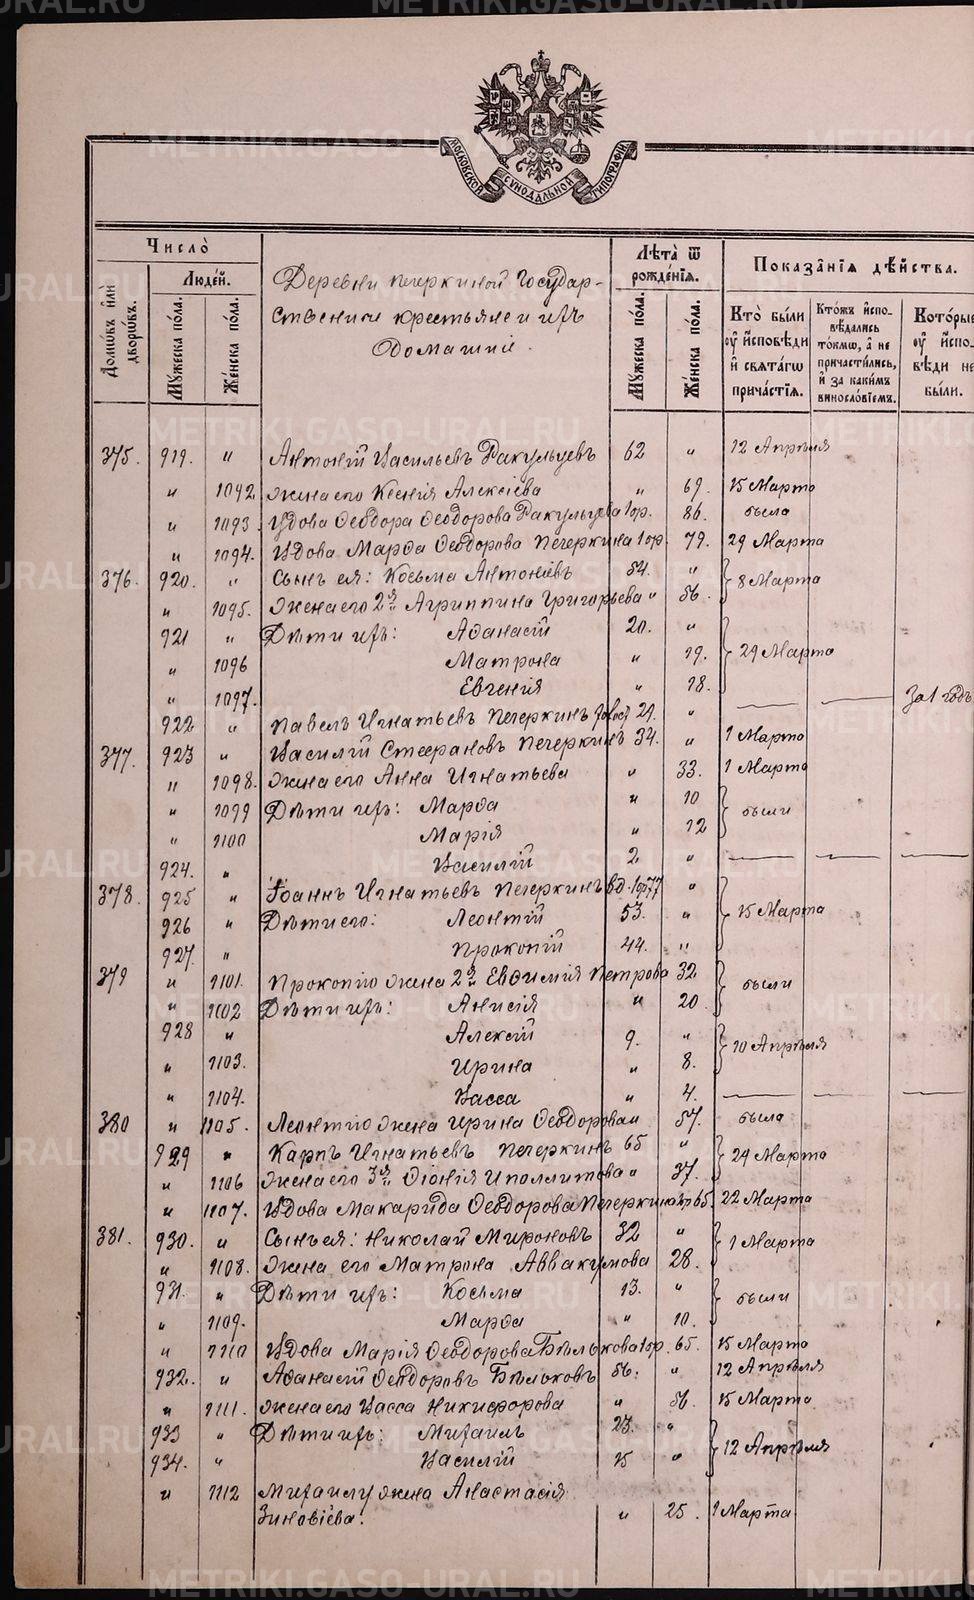 METRIKI.GASO-URAL.RU
МОСКОВСКОЙ СѴНОДАЛЬНОЙ ТИПОГРАФІИ
Число̀
Домѡ́въ и҆лѝ дворѡ́въ.
Люде́й.
Мꙋ́жеска по́ла.
Же́нска по́ла.
Деревни Печеркиной Государ-
ственные крестьяне и ихъ
домашніе.
Лѣ́та ѿ рожде́нїѧ.
Мꙋ́жеска по́ла.
Же́нска по́ла.
Показа̑нїѧ дѣ́йства.
Кто̀ бы́ли ᲂу҆ и҆сповѣ́ди и҆ свѧта́гѡ прича́стїѧ.
Кто́жъ и҆спо-вѣ́дались то́кмѡ, а҆ не причасти́лись, и҆ за каки́мъ винносло́вїемъ.
Кото́рые ᲂу҆ и҆спо-вѣ́ди не бы́ли.
375. 919. " Антоній Васильевъ Ракульцевъ 62 " 12 Апрѣля
" 1092 жена его Ксенія Алексіева " 69. 15 Марта
" 1093. Вдова Ѳеодора Ѳеодорова Ракульцева 1 бр. 86. была
" 1094. Вдова Марѳа Ѳеодорова Печеркина 1 бр. 79. 29 Марта
376. 920. " Сынъ ея: Косьма Антоніевъ 54. " 8 Марта
" 1095. Жена его 2я Агриппина Григорьева " 56.
921 " Дѣти ихъ: Аѳанасій 20. " 29 Марта
" 1096 Матрона " 19.
" 1097. Евгенія " 18. За 1 годъ
922 " Павелъ Игнатьевъ Печеркинъ холост 29. " 1 Марта
377. 923 " Василій Стефановъ Печеркинъ 34. "
" 1098. Жена его Анна Игнатьева " 33. 1 Марта
" 1099 Дѣти ихъ: Марѳа " 10 были
" 1100 Марія " 12
924. " Василій 2 "
378. 925 " Іоаннъ Игнатьевъ Печеркинъ вд. 1 бр. 77 " 15 Марта
926 " Дѣти его: Леонтій 53. "
927. " Прокопій 44. "
379 " 1101. Прокопію жена 2я Евѳимія Петрова 32 были
" 1102 Дѣти ихъ: Анисія " 20.
928 " Алексій 9. " 10 Апрѣля
" 1103. Ирина " 8.
" 1104. Васса " 4.
380 " 1105. Леонтію жена Ирина Ѳеодорова " 57. была
929 " Карпъ Игнатьевъ Печеркинъ 65 " 24 Марта
" 1106 Жена его 3я Ѳіонія Ипполитова " 37.
" 1107. Вдова Макарида Ѳеодорова Печеркина 65. 22 Марта
381. 930. " Сынъ ея: Николай Мироновъ 32 " 1 Марта
" 1108. Жена его Матрона Аввакумова 28.
931. " Дѣти ихъ: Косьма 13. " были
" 1109. Марѳа " 10.
" 1110 Вдова Марія Ѳеодорова Бѣлькова 1 бр. 65. 15 Марта
932. " Аѳанасій Ѳеодоровъ Бѣльковъ 56. " 12 Апрѣля
" 1111. Жена его Васса Никифорова " 56. 15 Марта
933 " Дѣти ихъ: Михаилъ 23. " 12 Апрѣля
934. " Василій 15 "
" 1112 Михаилу жена Анастасія
Зиновіева. " 25. 1 Марта